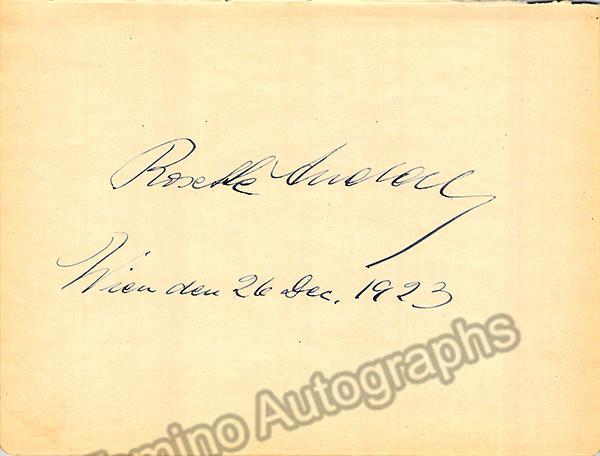 Rosette Anday
Wien den 26 Dec. 1923
Tamino Autographs